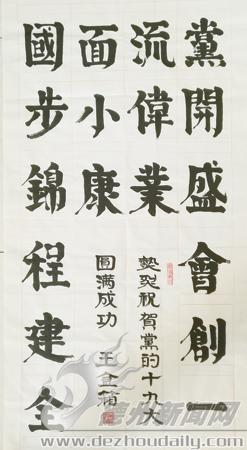 黨開盛會創一
流偉業
國步錦程建全
面小康
熱烈祝賀黨的十九大
圓滿成功 王金
德州新闻网
www.dezhoudaily.com